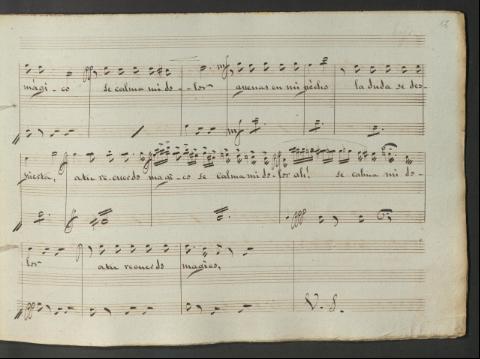 mági - co se calma mi do - - lor apenas en mi pecho la duda se des -
pierta, a tu recuerdo magi - co se calma mi do - lor ah! se calma mi do -
lor a tu recuerdo magico,
V. S.